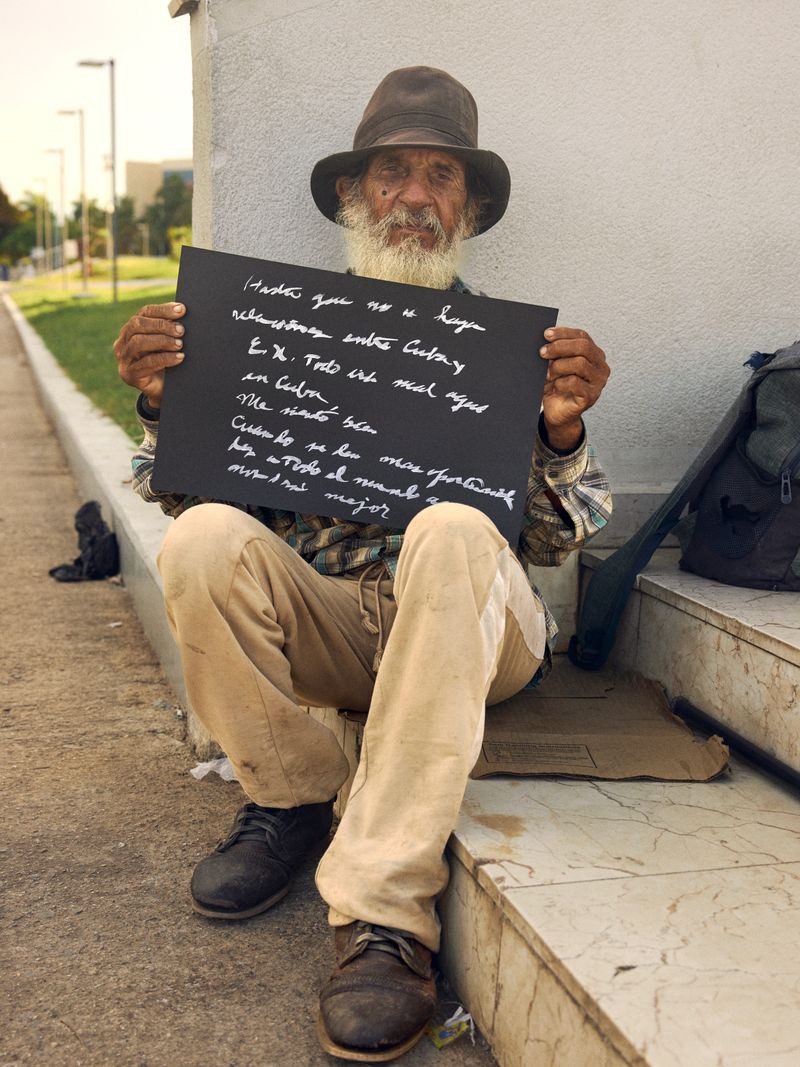 Hasta que no haya
relaciones entre Cuba y
E.U. Todo irá mal aquí
en Cuba
Me siento bien
Cuando se den mas oportunidades
hay Todo el mundo
mejor